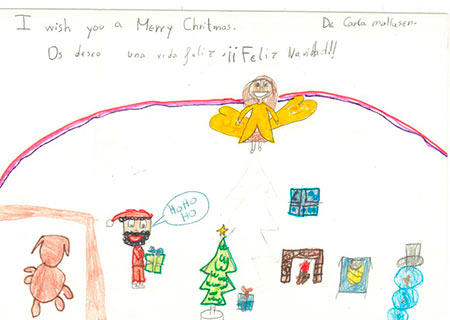 I wish you a Merry Chritmas.
De Carla mallasen.
Os deseo una vida feliz ¡¡Feliz Navidad!!
HoHo
HO